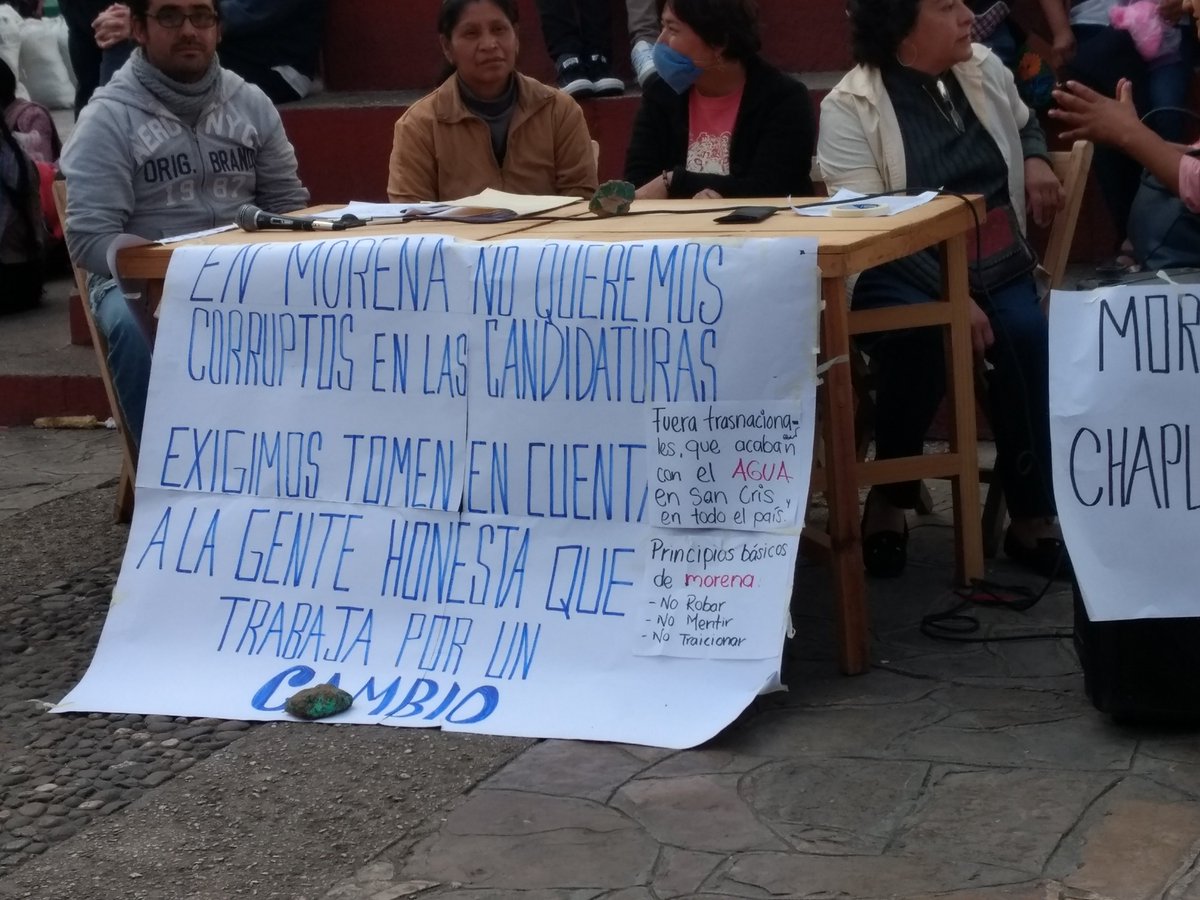 AERO NYC
ORIG. BRAND
1987
EN MORENA NO QUEREMOS
CORRUPTOS EN LAS CANDIDATURAS
EXIGIMOS TOMEN EN CUENTA
A LA GENTE HONESTA QUE
TRABAJA POR UN
CAMBIO
Fuera trasnaciona-
les, que acaban
con el AGUA
en San Cris, y
en todo el país.
Principios básicos
de morena.
- No Robar
- No Mentir
- No Traicionar
MOR
CHAPU